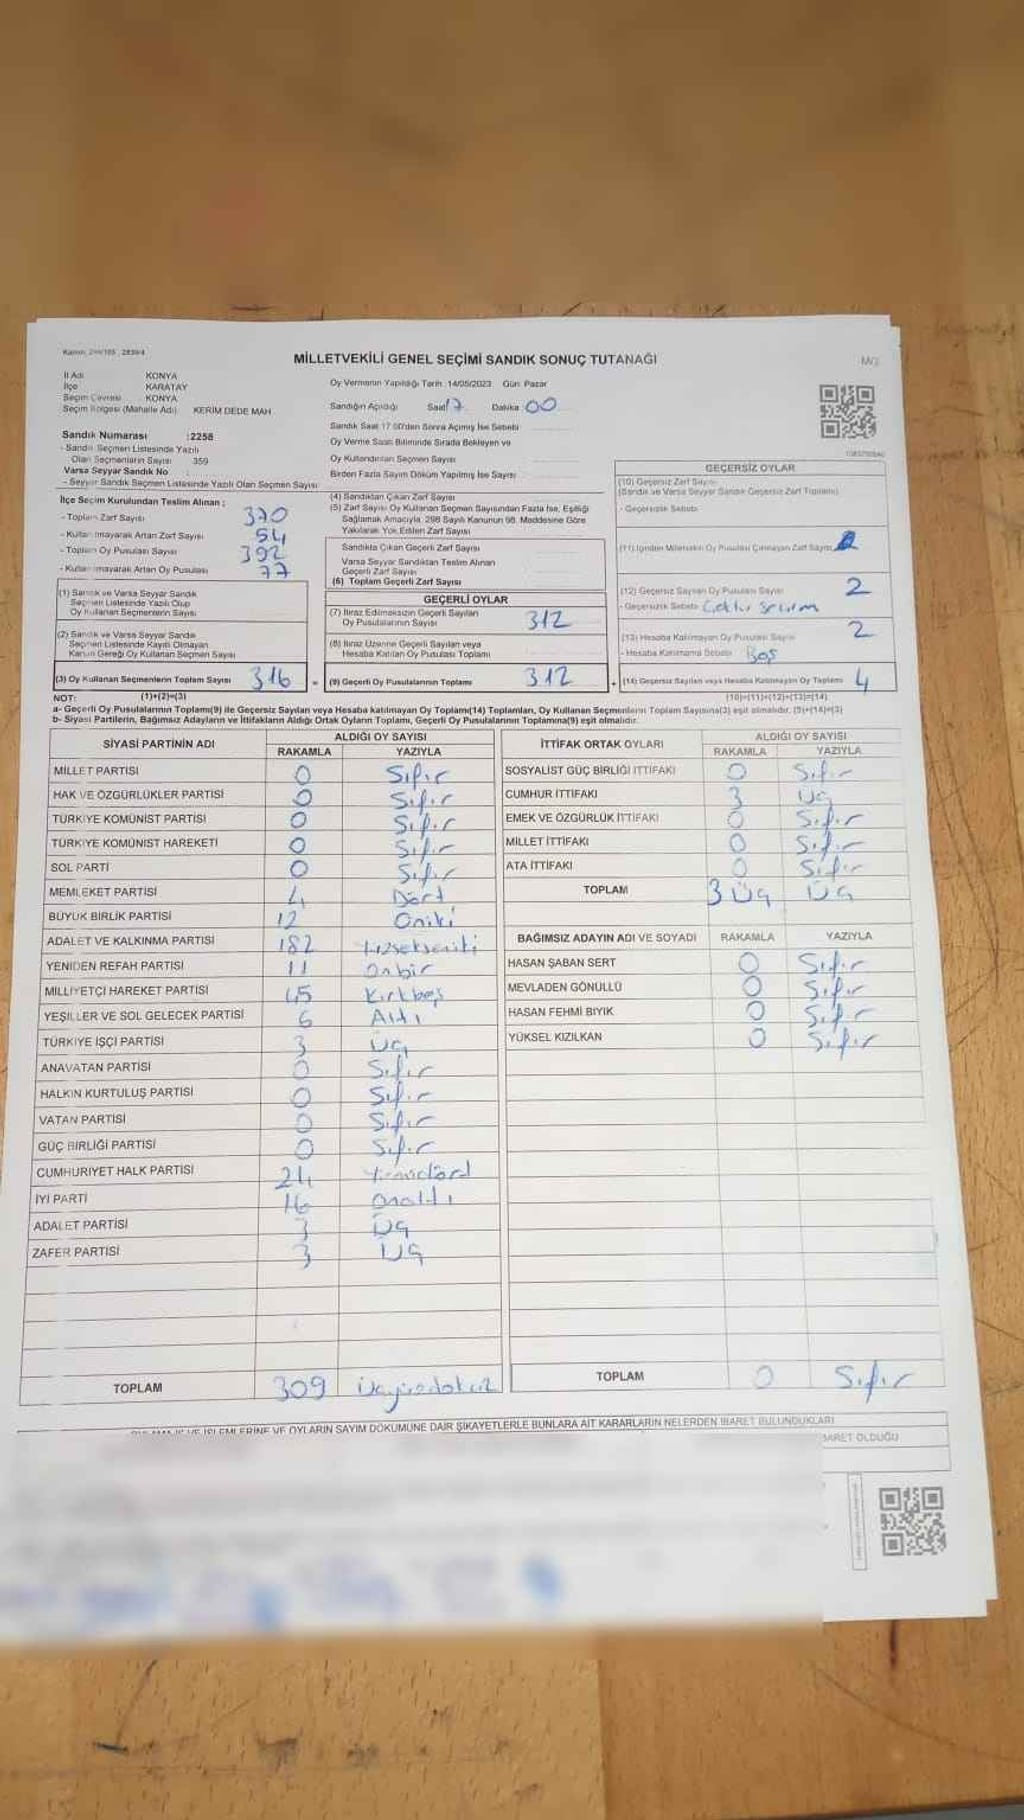 Kanun: 298/105 , 2839/4
MİLLETVEKİLİ GENEL SEÇİMİ SANDIK SONUÇ TUTANAĞI
İl Adı KONYA
İlçe KARATAY
Seçim Çevresi KONYA
Seçim Bölgesi (Mahalle Adı) KERİM DEDE MAH.
Sandık Numarası :2258
- Sandık Seçmen Listesinde Yazılı
Olan Seçmenlerin Sayısı 359
Varsa Seyyar Sandık No :
- Seyyar Sandık Seçmen Listesinde Yazılı Olan Seçmen Sayısı
Oy Vermenin Yapıldığı Tarih: 14/05/2023 Gün: Pazar
Sandığın Açıldığı Saat 17 Dakika 00
Sandık Saat 17.00'den Sonra Açılmış İse Sebebi
Oy Verme Saati Bitiminde Sırada Bekleyen ve
Oy Kullandırılan Seçmen Sayısı
Birden Fazla Sayım Döküm Yapılmış İse Sayısı
İlçe Seçim Kurulundan Teslim Alınan ;
- Toplam Zarf Sayısı 370
- Kullanılmayarak Artan Zarf Sayısı 54
- Toplam Oy Pusulası Sayısı 392
- Kullanılmayarak Artan Oy Pusulası 77
(1) Sandık ve Varsa Seyyar Sandık
Seçmen Listesinde Yazılı Olup
Oy Kullanan Seçmenlerin Sayısı
(2) Sandık ve Varsa Seyyar Sandık
Seçmen Listesinde Kayıtlı Olmayan
Kanun Gereği Oy Kullanan Seçmen Sayısı
(3) Oy Kullanan Seçmenlerin Toplam Sayısı 316 =
(4) Sandıktan Çıkan Zarf Sayısı
(5) Zarf Sayısı Oy Kullanan Seçmen Sayısından Fazla İse, Eşitliği
Sağlamak Amacıyla, 298 Sayılı Kanunun 98. Maddesine Göre
Yakılarak Yok Edilen Zarf Sayısı
Sandıkta Çıkan Geçerli Zarf Sayısı
Varsa Seyyar Sandıktan Teslim Alınan
Geçerli Zarf Sayısı
(6) Toplam Geçerli Zarf Sayısı
GEÇERLİ OYLAR
(7) İtiraz Edilmeksizin Geçerli Sayılan
Oy Pusulalarının Sayısı 312
(8) İtiraz Üzerine Geçerli Sayılan veya
Hesaba Katılan Oy Pusulası Toplamı
(9) Geçerli Oy Pusulalarının Toplamı 312 +
GEÇERSİZ OYLAR
(10) Geçersiz Zarf Sayısı
(Sandık ve Varsa Seyyar Sandık Geçersiz Zarf Toplamı)
- Geçersizlik Sebebi
(11) İçinden Milletvekili Oy Pusulası Çıkmayan Zarf Sayısı
(12) Geçersiz Sayılan Oy Pusulası Sayısı 2
- Geçersizlik Sebebi
(13) Hesaba Katılmayan Oy Pusulası Sayısı 2
- Hesaba Katılmama Sebebi Boş
(14) Geçersiz Sayılan veya Hesaba Katılmayan Oy Toplamı 4
NOT: (1)+(2)=(3) (10)+(11)+(12)+(13)=(14)
a- Geçerli Oy Pusulalarının Toplamı(9) ile Geçersiz Sayılan veya Hesaba katılmayan Oy Toplamı(14) Toplamları, Oy Kullanan Seçmenlerin Toplam Sayısına(3) eşit olmalıdır. (9)+(14)=(3)
b- Siyasi Partilerin, Bağımsız Adayların ve İttifakların Aldığı Ortak Oyların Toplamı, Geçerli Oy Pusulalarının Toplamına(9) eşit olmalıdır.
SİYASİ PARTİNİN ADI ALDIĞI OY SAYISI
RAKAMLA YAZIYLA
MİLLET PARTİSİ 0 Sıfır
HAK VE ÖZGÜRLÜKLER PARTİSİ 0 Sıfır
TÜRKİYE KOMÜNİST PARTİSİ 0 Sıfır
TÜRKİYE KOMÜNİST HAREKETİ 0 Sıfır
SOL PARTİ 0 Sıfır
MEMLEKET PARTİSİ 4 Dört
BÜYÜK BİRLİK PARTİSİ 12 Oniki
ADALET VE KALKINMA PARTİSİ 182
YENİDEN REFAH PARTİSİ 11 Onbir
MİLLİYETÇİ HAREKET PARTİSİ 45 Kırkbeş
YEŞİLLER VE SOL GELECEK PARTİSİ 6 Altı
TÜRKİYE İŞÇİ PARTİSİ 3 Üç
ANAVATAN PARTİSİ 0 Sıfır
HALKIN KURTULUŞ PARTİSİ 0 Sıfır
VATAN PARTİSİ 0 Sıfır
GÜÇ BİRLİĞİ PARTİSİ 0 Sıfır
CUMHURİYET HALK PARTİSİ 24 Yirmidörd
İYİ PARTİ 16 Onaltı
ADALET PARTİSİ 3 Üç
ZAFER PARTİSİ 3 Üç
TOPLAM 309
İTTİFAK ORTAK OYLARI ALDIĞI OY SAYISI
RAKAMLA YAZIYLA
SOSYALİST GÜÇ BİRLİĞİ İTTİFAKI 0 Sıfır
CUMHUR İTTİFAKI 3 Üç
EMEK VE ÖZGÜRLÜK İTTİFAKI 0 Sıfır
MİLLET İTTİFAKI 0 Sıfır
ATA İTTİFAKI 0 Sıfır
TOPLAM 3 Üç Üç
BAĞIMSIZ ADAYIN ADI VE SOYADI RAKAMLA YAZIYLA
HASAN ŞABAN SERT 0 Sıfır
MEVLADEN GÖNÜLLÜ 0 Sıfır
HASAN FEHMİ BIYIK 0 Sıfır
YÜKSEL KIZILKAN 0 Sıfır
TOPLAM 0 Sıfır
İŞLEMLERİNE VE OYLARIN SAYIM DÖKÜMÜNE DAİR ŞİKAYETLERLE BUNLARA AİT KARARLARIN NELERDEN İBARET BULUNDUKLARI
İBARET OLDUĞU